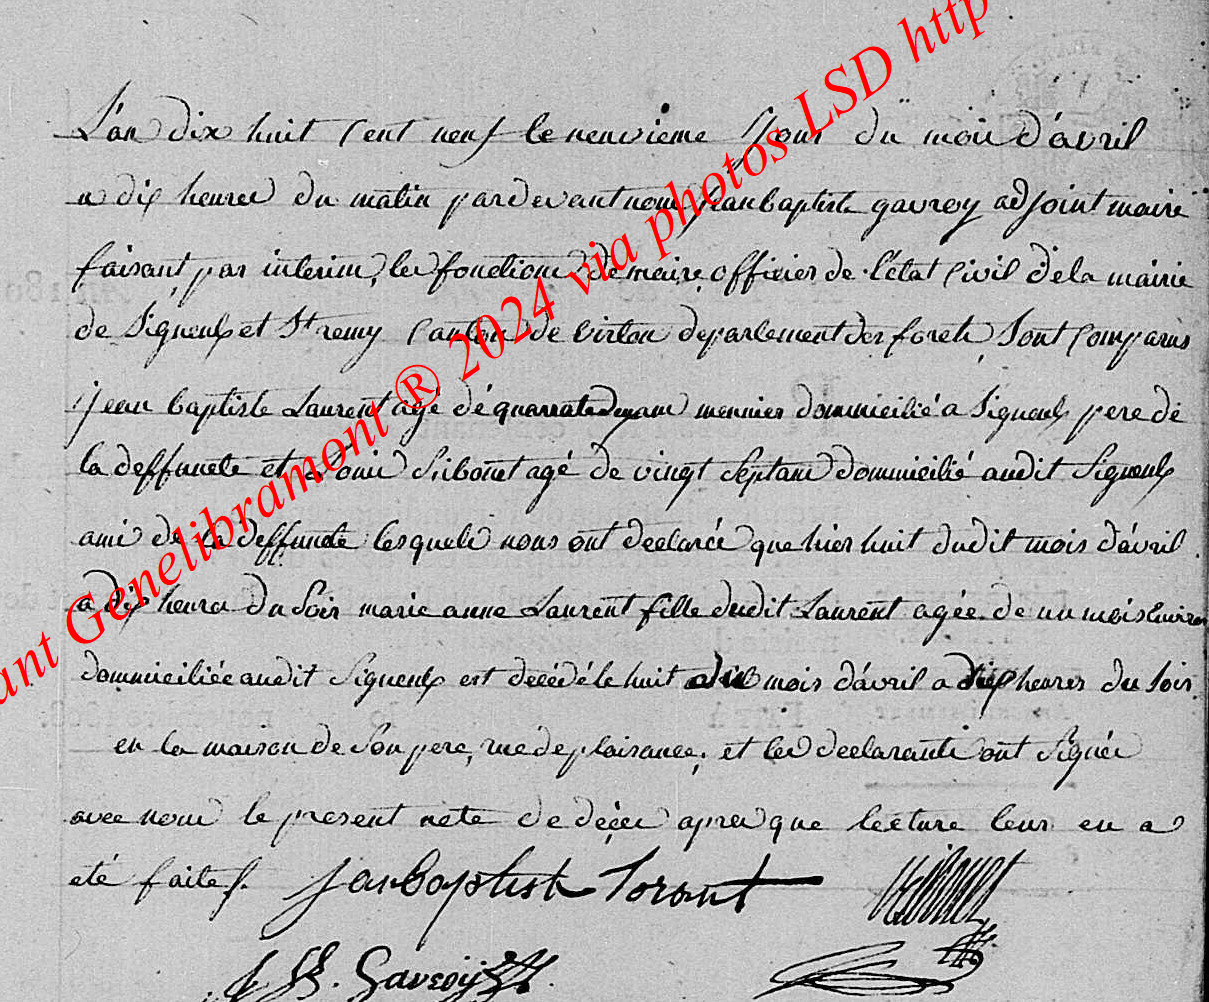 L'an dix huit Cent neuf le neuvieme Jour du mois d'avril
a dix heures du matin pardevant nous Jean baptiste gavroy adjoint maire
faisant par interim, les fonctions de maire, officier de l'état Civil de la mairie
de Signeulx et St remy Canton de virton departement des forets Sont Comparus
jean baptiste Laurent agé de quarrante ans meunier domicilié a Signeulx pere de
la deffuncte et Louis agé de vingt Sept ans domicilié audit Signeulx
ami de la deffuncte lesquels nous ont declarés que hier huit dudit mois d'avril
a dix heures du Soir marie anne Laurent fille dudit Laurent agée de un mois Environ
dommiciliée audit Signeulx est decédé le huit du mois d'avril a dix heures du Soir
en la maison de Son pere, rue de plaisance, et les declarants ont Signés
avec nous le present acte de décès apres que lecture leur en a
eté faites.
Jan Baptist Lorant
J B. Gavroÿ
ant Genelibramont ® 2024 via photos LSD http